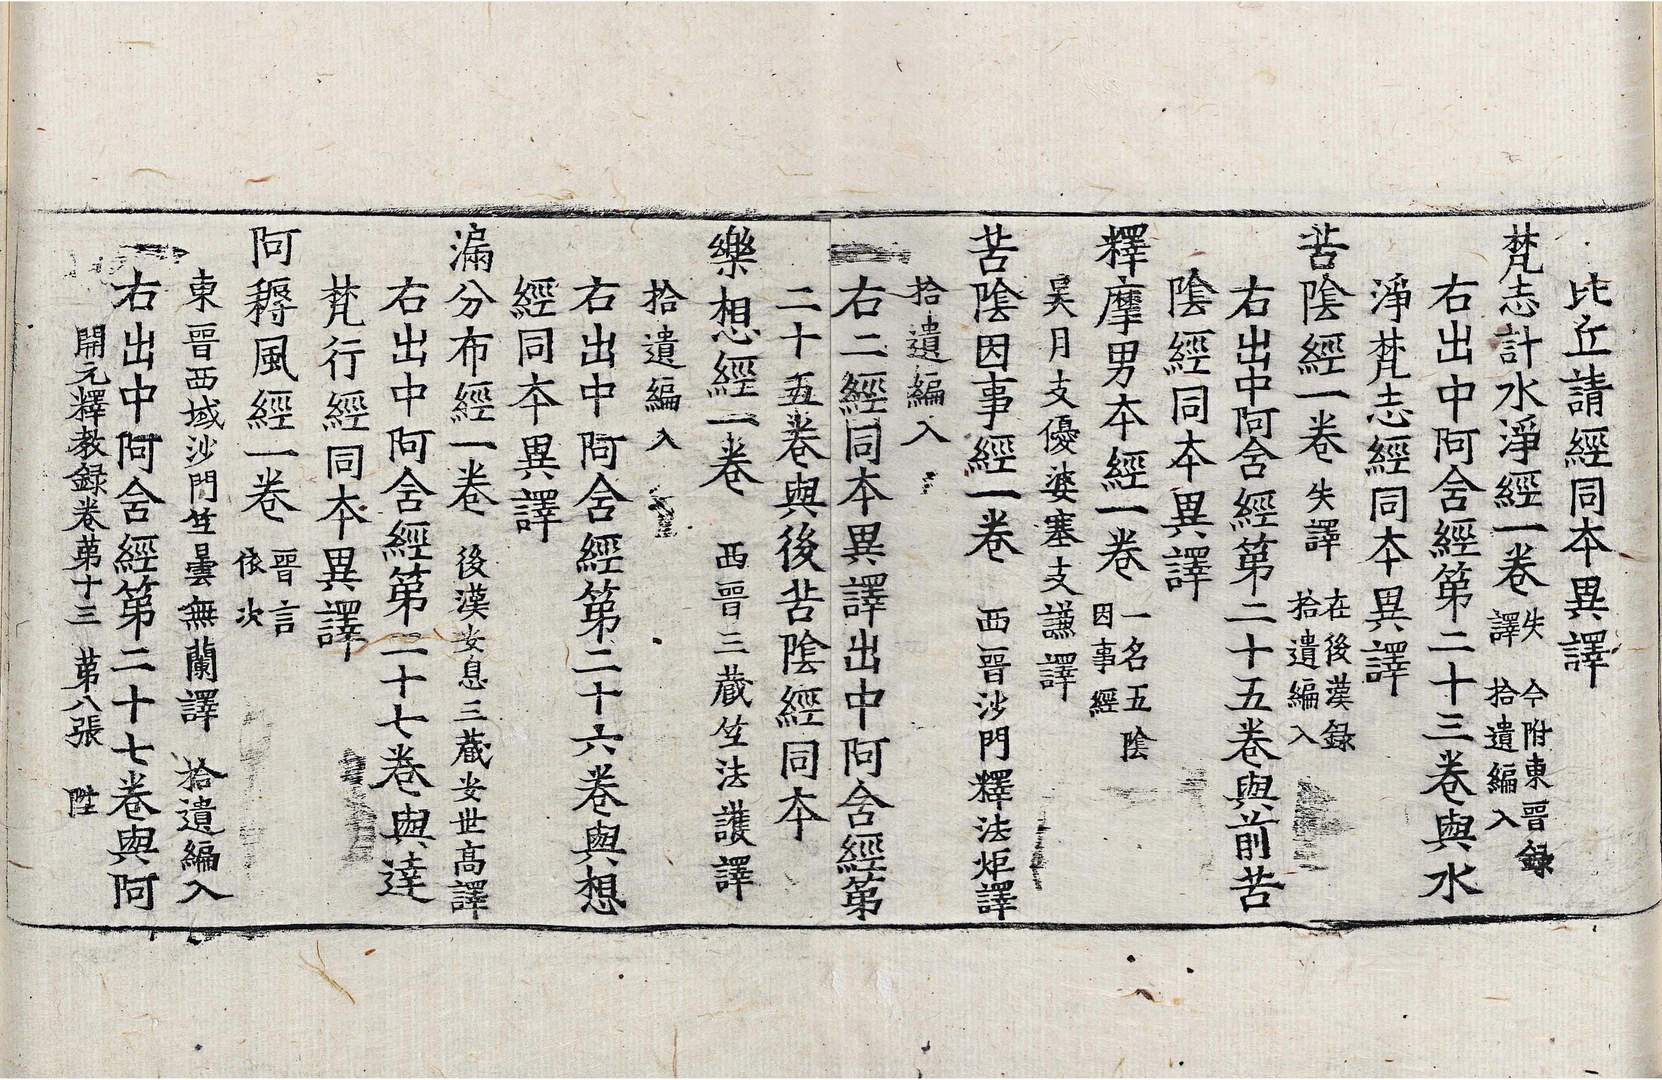 比丘請經同本異譯
梵志計水淨經一卷 失譯 今附東晉録 拾遺編入
右出中阿含經第二十三卷與水
淨梵志經同本異譯
苦陰經一卷 失譯 在後漢録 拾遺編入
右出中阿含經第二十五卷與前苦
陰經同本異譯
釋摩男本經一卷 一名五陰因事經
吴月支優婆塞支謙譯
苦陰因事經一卷 西晉沙門釋法炬譯
拾遺編入
右二經同本異譯出中阿含經第
二十五卷與後苦陰經同本
樂想經一卷 西晉三藏竺法護譯
拾遺編入
右出中阿含經第二十六卷與想
經同本異譯
漏分布經一卷 後漢安息三藏安世高譯
右出中阿含經第二十七卷與達
梵行經同本異譯
阿耨風經一卷 晉言依次
東晉西域沙門竺曇無蘭譯 拾遺編入
右出中阿含經第二十七卷與阿
開元釋教録卷苐十三 苐八張 陞